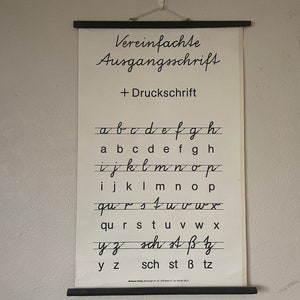 Vereinfachte
Ausgangsschrift
+ Druckschrift
a b c d e f g h
a b c d e f g h
i j k l m n o p
i j k l m n o p
qu r s t u v w x
qu r s t u v w x
y z sch st ß tz
y z sch st ß tz